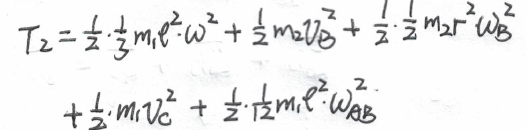 T₂ = 1/2 · 1/3 m₁ℓ² · ω² + 1/2 m₂v_B² + 1/2 · 1/2 m₂r² ω_B²
+ 1/2 · m₁v_C² + 1/2 · 1/12 m₁ℓ² · ω_AB²